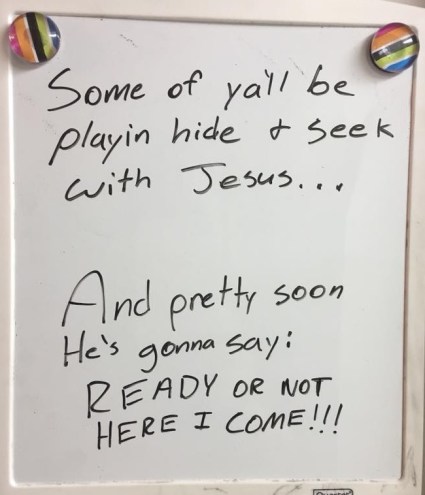 Some of ya'll be
playin hide & seek
with Jesus...
And pretty soon
He's gonna say:
READY OR NOT
HERE I COME!!!